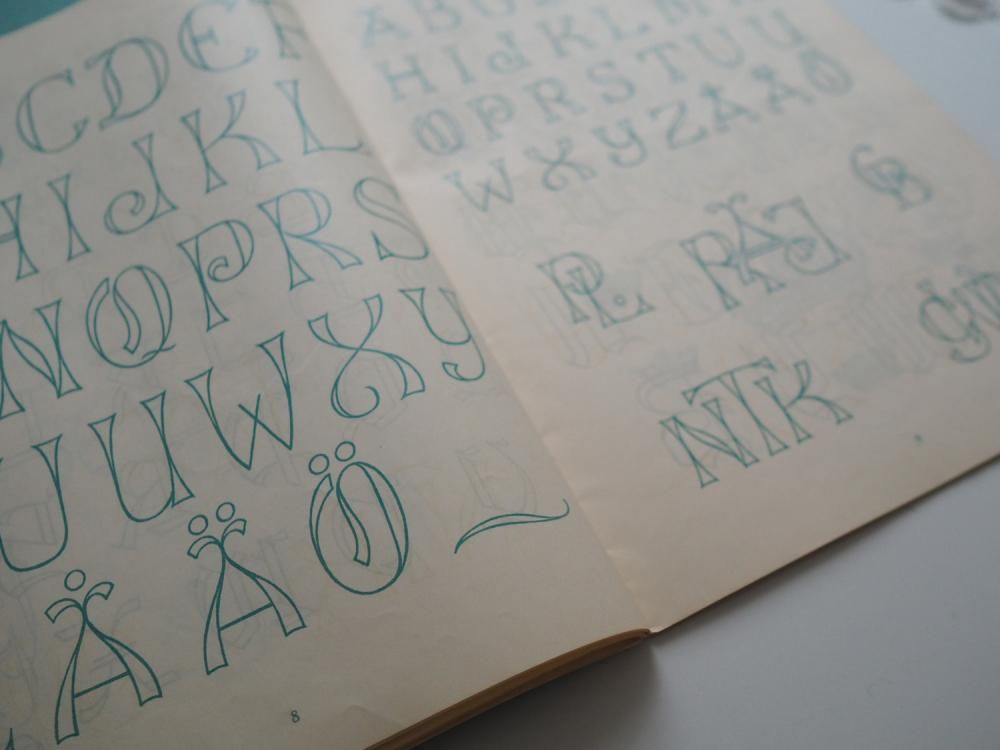 C D E F
H I J K L
N Q P R S
U U W X Y
Å Ä Ö
8
A B C
H I J K L M
Q P R S T U U
W X Y Z Å Ä Ö
PL RÅJ
NTK